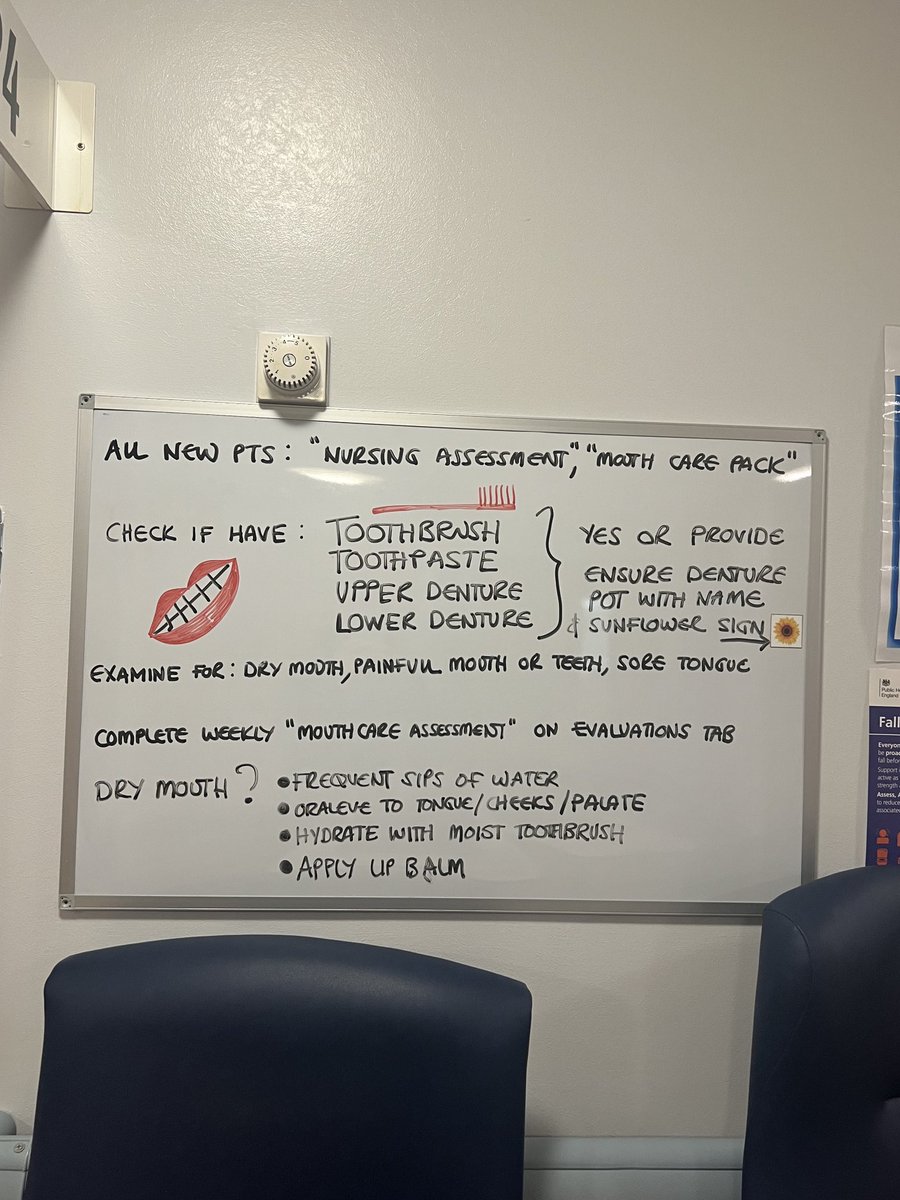 4
5 4 3 2 1 0
ALL NEW PTS : "NURSING ASSESSMENT", "MOUTH CARE PACK"
CHECK IF HAVE :
TOOTHBRUSH
TOOTHPASTE
UPPER DENTURE
LOWER DENTURE
YES OR PROVIDE
ENSURE DENTURE
POT WITH NAME
& SUNFLOWER SIGN
EXAMINE FOR : DRY MOUTH, PAINFUL MOUTH OR TEETH, SORE TONGUE
COMPLETE WEEKLY "MOUTH CARE ASSESSMENT" ON EVALUATIONS TAB
DRY MOUTH ?
• FREQUENT SIPS OF WATER
• ORALEVE TO TONGUE / CHEEKS / PALATE
• HYDRATE WITH MOIST TOOTHBRUSH
• APPLY LIP BALM
Public He
England
Fall
Everyon
be proac
fall befor
Support
active as
strength
Assess, A
to reduce
associate